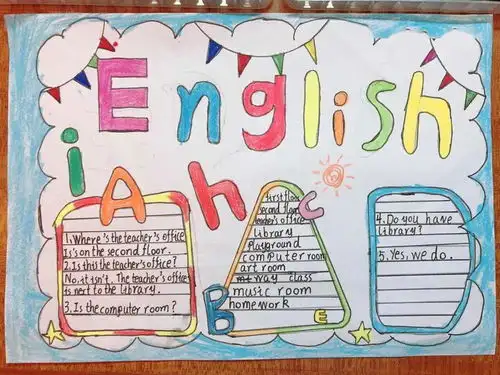 English
i A h c
1. Where's the teacher's office
Is's on the second floor.
2. Is this the teacher's office?
No. it isn't. The teacher's office
is next to the library.
3. Is the computer room?
first floor
second floor
teacher's office
library
playground
computer room
art room
way class
music room
homework
B
E
4. Do you have
library?
5. Yes, we do.